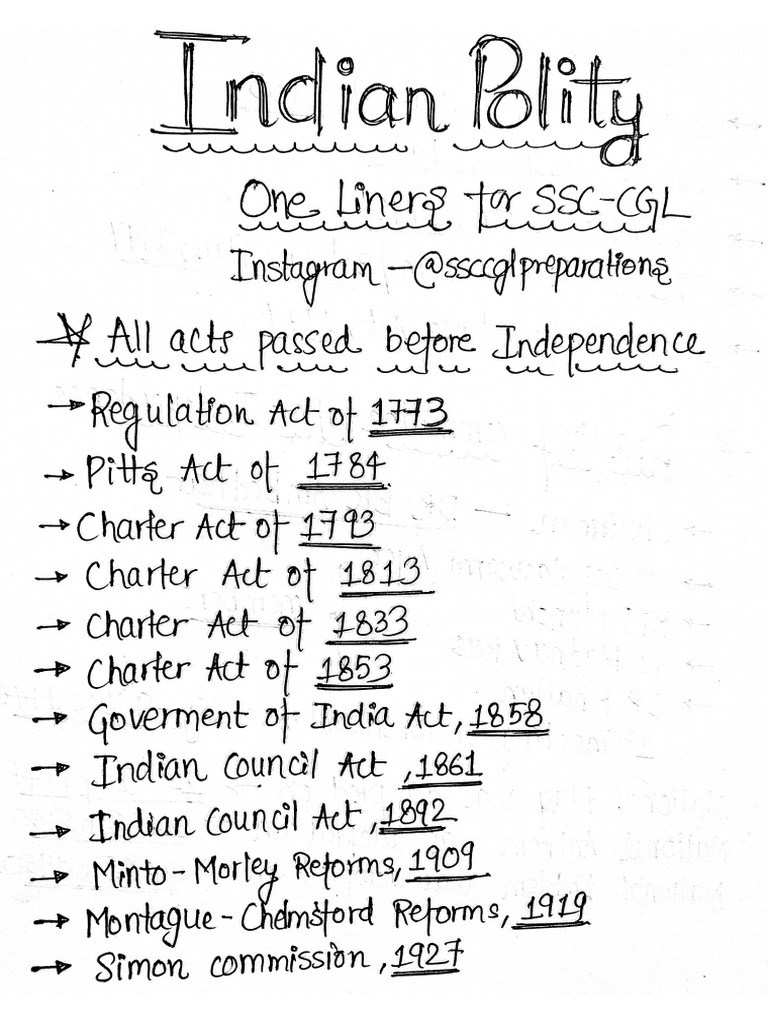 Indian Polity
One Liners for SSC-CGL
Instagram - @ssccglpreparations
All acts passed before Independence
→ Regulation Act of 1773
→ Pitts Act of 1784
→ Charter Act of 1793
→ Charter Act of 1813
→ Charter Act of 1833
→ Charter Act of 1853
→ Goverment of India Act, 1858
→ Indian Council Act, 1861
→ Indian Council Act, 1892
→ Minto-Morley Reforms, 1909
→ Montague-Chelmsford Reforms, 1919
→ Simon commission, 1927